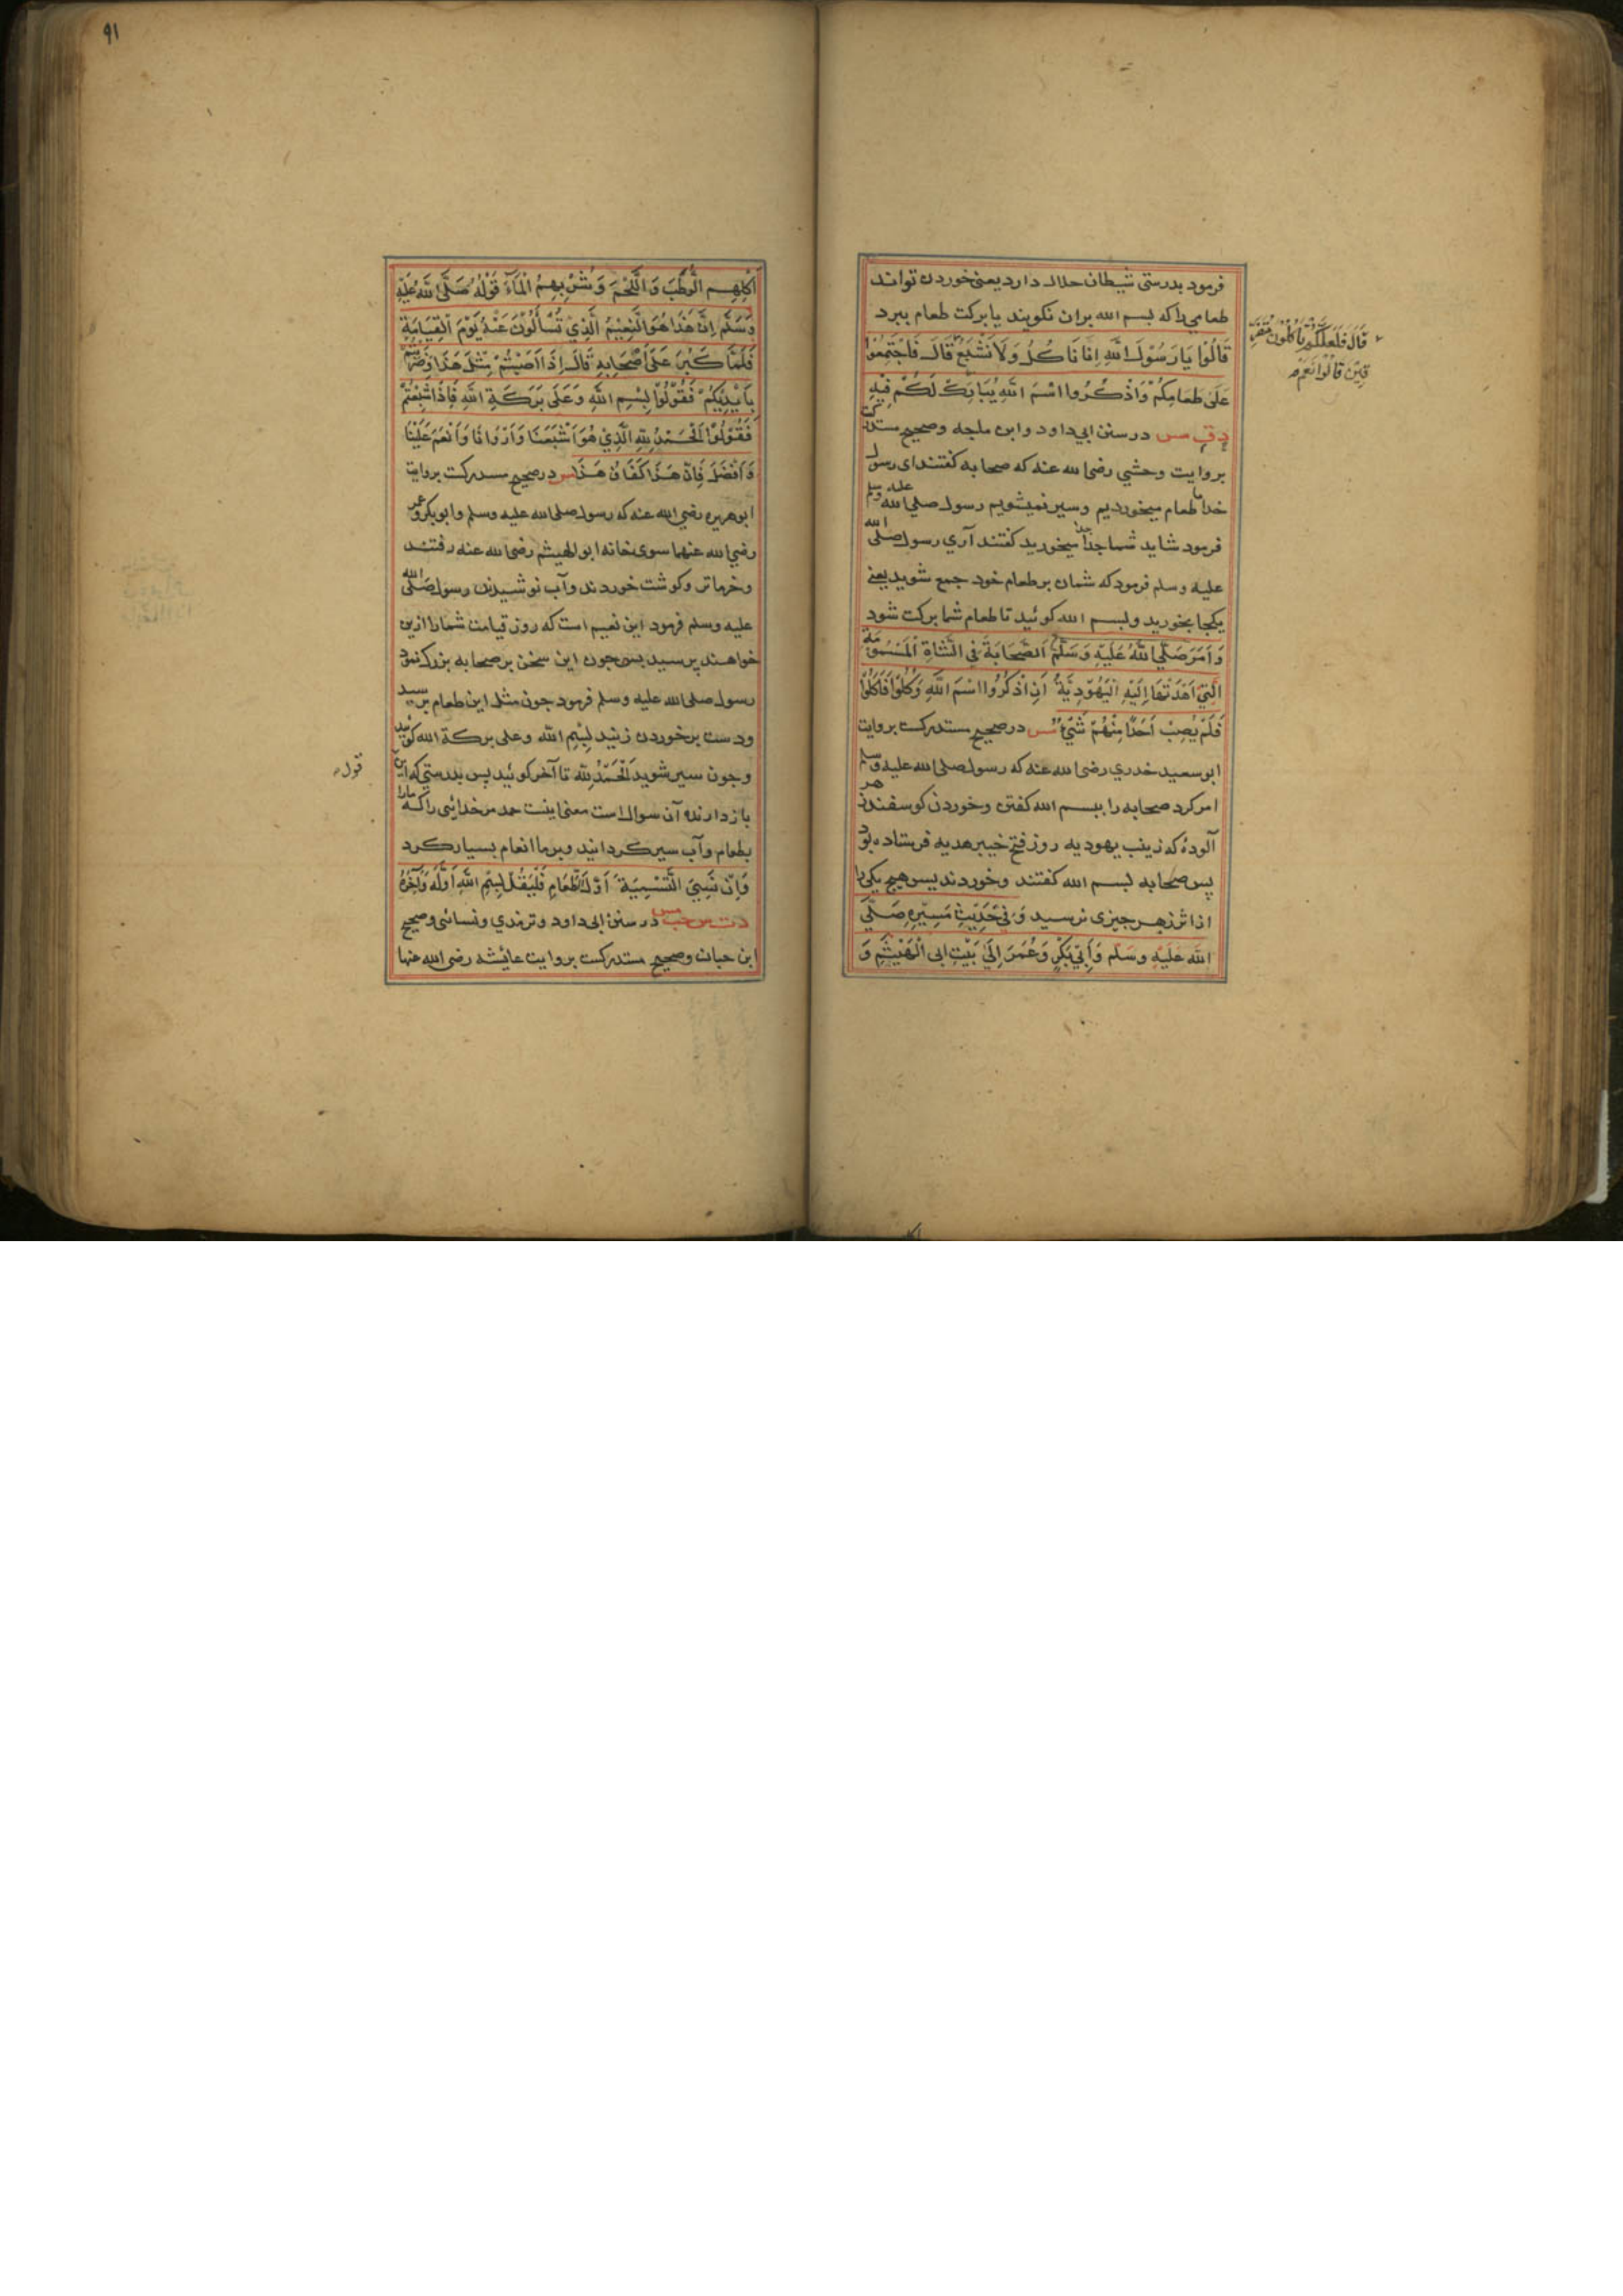 فرمود بدرستی شیطان حلال دارد یعنی خوردن تواند
طعامی را که بسم الله بران نکویند یا برکت طعام ببرد
قَالُوْا يَا رَسُوْلَ اللهِ اِنَّا نَاكُلُ وَلَا نَشْبَعُ قَالَ فَاجْتَمِعُوْا
قَالَ فَلَعَلَّكُمْ تَاْكُلُوْنَ مُتَفَرِّ
قِيْنَ قَالُوْا نَعَمْ
عَلَى طَعَامِكُمْ وَاذْكُرُوا اسْمَ اللهِ يُبَارَكْ لَكُمْ فِيْهِ
د ق مس در سنن ابی داود وابن ماجه وصحیح مستدرکت
بروایت وحشی رضی الله عنه که صحابه کفتند ای رسول
خدا ما طعام میخوردیم وسیر نمیشویم رسول صلی الله علیه وسلم
فرمود شاید شما جدا میخورید کفتند آری رسول صلی الله
علیه وسلم فرمود که شمان بر طعام خود جمع شوید یعنی
یکجا بخورید وبسم الله کوئید تا طعام شما برکت شود
وَاَمَرَ صَلَّى اللهُ عَلَيْهِ وَسَلَّمَ الصَّحَابَةَ فِي الشَّاةِ الْمَسْمُوْمَةِ
الَّتِيْ اَهْدَتْهَا اِلَيْهِ الْيَهُوْدِيَّةُ اَنِ اذْكُرُوا اسْمَ اللهِ وَكُلُوْا فَاَكَلُوْا
فَلَمْ يُصِبْ اَحَدًا مِنْهُمْ شَيْءٌ مس در صحیح مستدرکت بروایت
ابو سعید خدری رضی الله عنه که رسول صلی الله علیه وسلم
امر کرد صحابه را ببسم الله کفتن وخوردن کوسفند زهر
آلودهٔ که زینب یهودیه روز فتح خیبر هدیه فرستاده بود
پس صحابه بسم الله کفتند وخوردند پس هیچ یکی را
از اثر زهر چیزی نرسید وَفِيْ حَدِيْثِ مَسِيْرِهِ صَلَّى
اللهُ عَلَيْهِ وَسَلَّم وَاَبِيْ بَكْرٍ وَعُمَرَ اِلَى بَيْتِ ابی الْهَيْثَمِ وَ
٩١
اَكْلِهِم الرُّطَبَ وَاللَّحْمَ وَشُرْبِهِمُ الْمَاءَ قَوْلُهُ صَلَّى الله عَلَيْهِ
وَسَلَّمَ اِنَّ هَذَا هُوَ النَّعِيْمُ الَّذِيْ تُسْاَلُوْنَ عَنْهُ يَوْمَ الْقِيَامَةِ
فَلَمَّا كَبُرَ عَلَى اَصْحَابِهِ قَالَ اِذَا اَصَبْتُمْ مِثْلَ هَذَا وَضَرَبْتُمْ
بِاَيْدِيْكُمْ فَقُوْلُوْا بِسْمِ اللهِ وَعَلَى بَرَكَةِ اللهِ فَاِذَا شَبِعْتُمْ
فَقُوْلُوْا الْحَمْدُ لِلهِ الَّذِيْ هُوَ اَشْبَعَنَا وَاَرْوَانَا وَاَنْعَمَ عَلَيْنَا
وَاَفْضَلَ فَاِنَّ هَذَا كَفَافُ هَذَا مس در صحیح مستدرکت بروایت
ابو هریره رضی الله عنه که رسول صلی الله علیه وسلم وابو بکر وعمر
رضی الله عنهما سوی خانه ابو الهیثم رضی الله عنه رفتند
وخرما تر وکوشت خوردند وآب نوشیدند رسول صلی الله
علیه وسلم فرمود این نعیم است که روز قیامت شما را ازین
خواهند پرسید پس چون این سخن بر صحابه بزرک نمود
رسول صلی الله علیه وسلم فرمود چون مثل این طعام برسید
ودست بر خوردن زنید بِسْمِ اللهِ وعلى بركة الله کوئید
وچون سیر شوید اَلْحَمْدُ لِلهِ تا آخر کوئید پس بدرستی که این
قول
باز دارنده آن سوال است معنی اینست حمد مر خدائی را که ما را
بطعام وآب سیر کردانید وبر ما انعام بسیار کرد
وَاِنْ نَسِيَ التَّسْمِيَةَ اَوَّلَ الطَّعَامِ فَلْيَقُلْ بِسْمِ اللهِ اَوَّلَهُ وَآخِرَهُ
د ت س حب مس در سنن ابی داود وترمذی ونسائی وصحیح
ابن حبان وصحیح مستدرکت بروایت عائشه رضی الله عنها